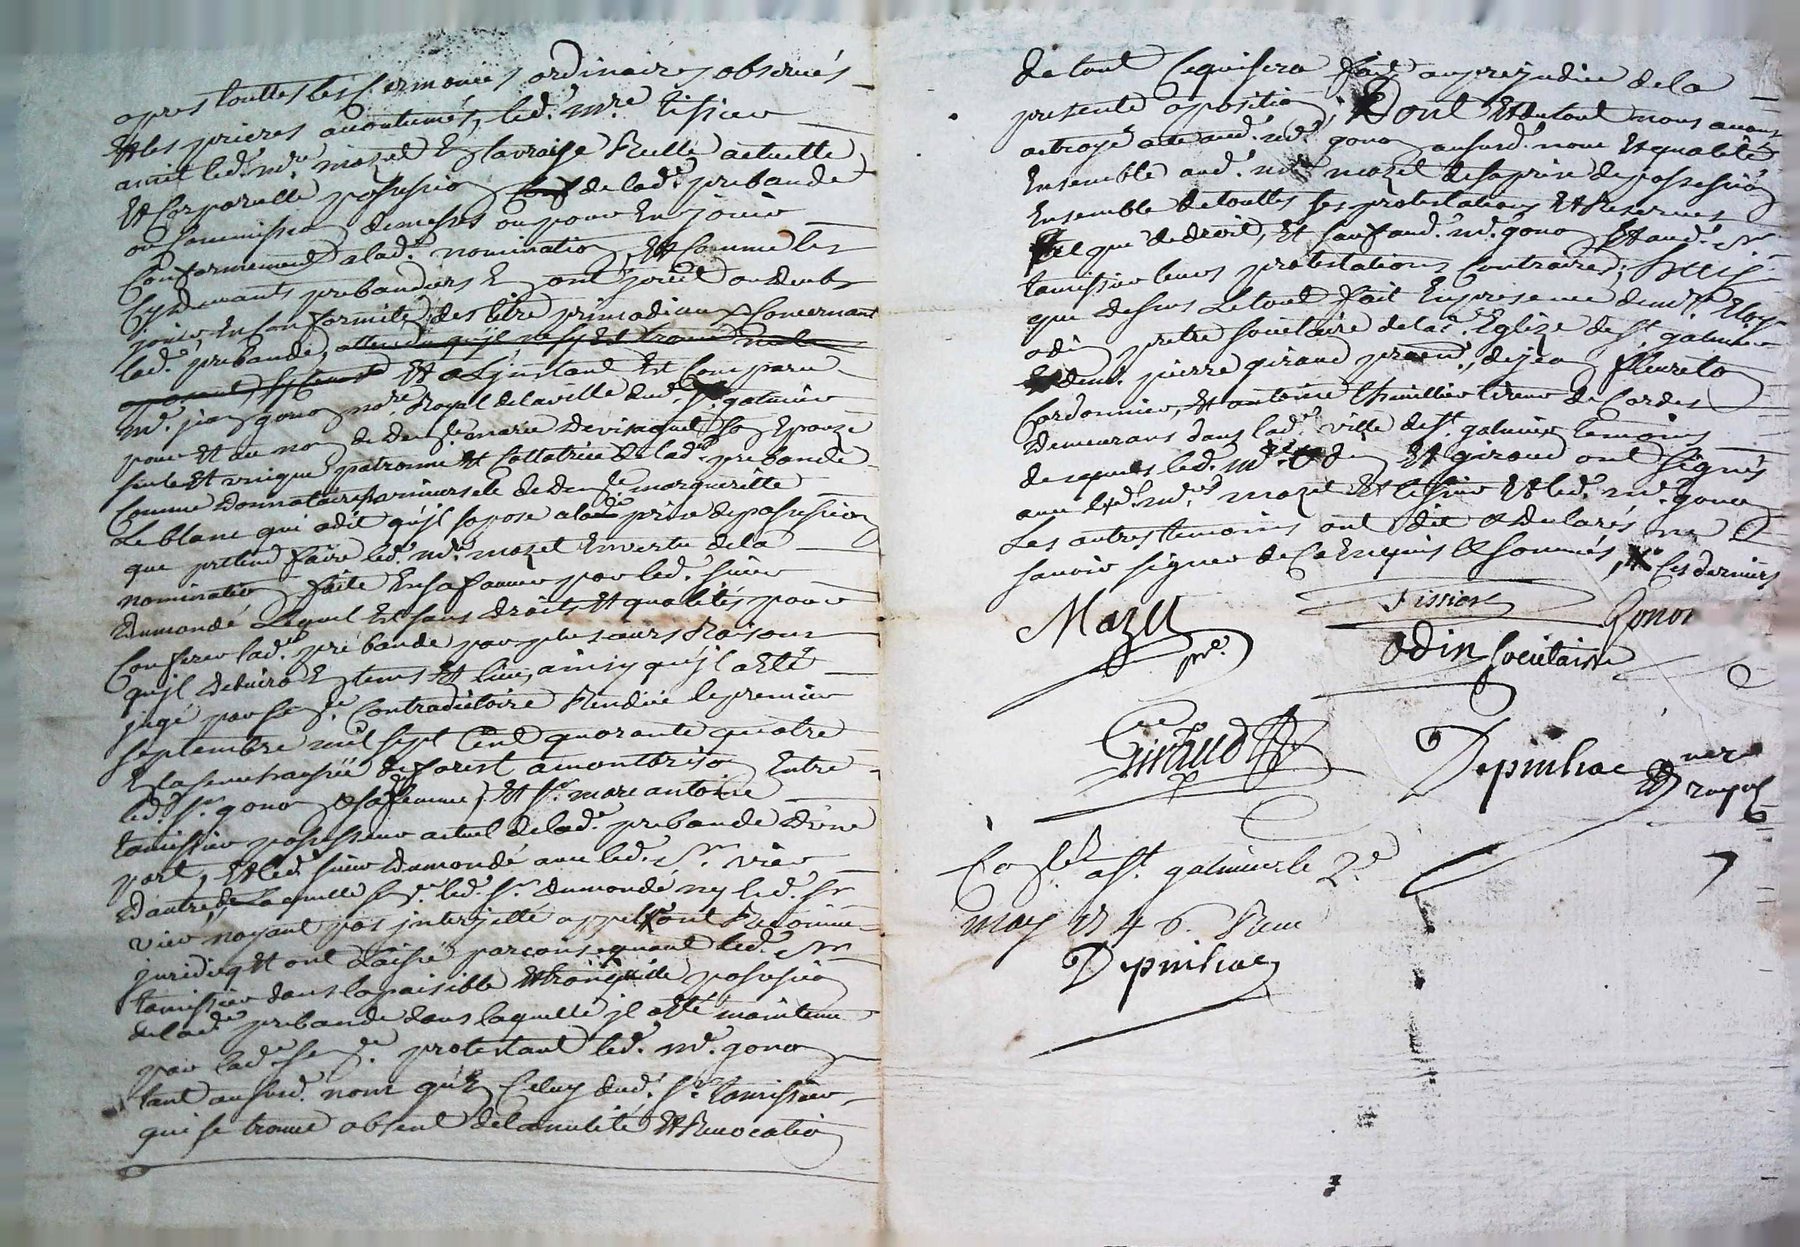 apres touttes les ceremonies ordinaires observés
et les prieres acoutumés, led. mre tissier
a mit led. mre mazet en la vraije reelle actuelle
et corporelle possession de lad.e prebande
ou commission de messes ou pour en jouir
conformement a lad.e nomination, et comme les
cydevants prebandiers en ont jouit ou deub
jouir, en conformité des titre primordiaux concernant
lad.e prebande, attendu qu'jl ne s'y est trouvé
et a l'jnstant est comparu
me. jean gonon nore. Royal de la ville dud. st. galmier
pour et au nom de dem.lle marie devinaquel son epouze
seule et unique patronne et collatrice de lad.e prebande
comme donnataire universele de dem.lle margueritte
Leblanc qui a dit qu'jl s'opose a lad.e prise de possession
que pretend faire led. mre mazet en vertu de la
nomination faite en sa faveur par led. sieur
dumondé lequel est sans droits et qualités pour
conferer lad.e prébande par plusieurs raisons
qu'jl deduira en tems et lieu, ainsy qu'jl a esté
jugé par sence contradictoire rendüe le premier
septembre mil sept cent quarante quatre
en la senechaussée de forest a montbrison entre
led. sr. gonon et sa femme, et sr. marc antoine
tamissier possesseur actuel de lad.e prebande d'une
part, et led. sieur dumondé avec led. sr. vier
d'autre, de laquelle sce led. sr. dumondé ny led. sr
vier n'ayant pas jnterjetté appel ont
juridiq et ont laissé par consequant led. sr
tamissier dans la paisible et tranquille possession
de lad.e prebande dans laquelle jl a esté maintenu
par lad.e sce. protestant led. me. gonon
tant ausud. nom qu'en celuy dud. sr. tamissier
qui se trouve absent de la nulité et revocation
de tout ce qui sera fait au prejudice de la
presente oposition, Dont et du tout nous avons
octroyé acte aud. me. gonon ausud. nom et qualité
ensemble aud. mre mazet de sa prise de possession
ensemble de touttes ses protestations et reserves
tel que de droit, et sauf aud. me. gonon et aud. sr
tamissier leurs protestations contraires,
que dessus le tout fait en presence de mre Eloy
odin pretre societaire de la Eglize de st. galmier
pierre giraud de jean fleureton
cordonnier, et antoine thimillier tireur de cordes
demeurans dans lad.e ville de st. galmier temoins
desquels led. mre odin et giraud ont signés
avec lesd. mres mazet et tissier et led. me. gonon
Les autres temoins ont dit et declarés ne
sçavoir signer de ce enquis et sommés, ces derniers
Mazet
pre.
Tissier
Gonon
odin societaire
Giraud
Depinhac
nore
royal
Co.lé a st. galmier le 2e
may 1746. Reçu
Depinhac